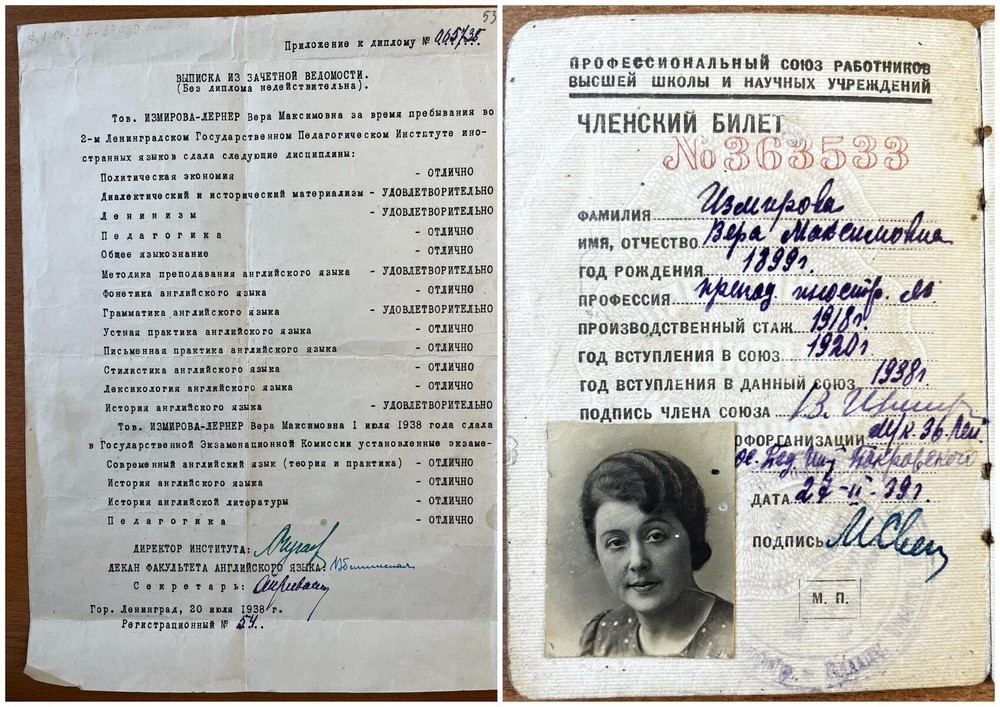 53
Приложение к диплому № 065735.
ВЫПИСКА ИЗ ЗАЧЕТНОЙ ВЕДОМОСТИ.
(Без диплома недействительна).
Тов. ИЗМИРОВА-ЛЕРНЕР Вера Максимовна за время пребывания во
2-м Ленинградском Государственном Педагогическом Институте ино-
странных языков сдала следующие дисциплины:
Политическая экономия - ОТЛИЧНО
Диалектический и исторический материализм - УДОВЛЕТВОРИТЕЛЬНО
Ленинизм - УДОВЛЕТВОРИТЕЛЬНО
Педагогика - ОТЛИЧНО
Общее языкознание - ОТЛИЧНО
Методика преподавания английского языка - УДОВЛЕТВОРИТЕЛЬНО
Фонетика английского языка - ОТЛИЧНО
Грамматика английского языка - УДОВЛЕТВОРИТЕЛЬНО
Устная практика английского языка - ОТЛИЧНО
Письменная практика английского языка - ОТЛИЧНО
Стилистика английского языка - ОТЛИЧНО
Лексикология английского языка - ОТЛИЧНО
История английского языка - УДОВЛЕТВОРИТЕЛЬНО
Тов. ИЗМИРОВА-ЛЕРНЕР Вера Максимовна 1 июля 1938 года сдала
в Государственной Экзаменационной Комиссии установленные экзаме-
Современный английский язык (теория и практика) - ОТЛИЧНО
История английского языка - ОТЛИЧНО
История английской литературы - ОТЛИЧНО
Педагогика - ОТЛИЧНО
ДИРЕКТОР ИНСТИТУТА:
ДЕКАН ФАКУЛЬТЕТА АНГЛИЙСКОГО ЯЗЫКА:
Секретарь:
Гор. Ленинград, 20 июля 1938 г.
Регистрационный № 54.
ПРОФЕССИОНАЛЬНЫЙ СОЮЗ РАБОТНИКОВ
ВЫСШЕЙ ШКОЛЫ И НАУЧНЫХ УЧРЕЖДЕНИЙ
ЧЛЕНСКИЙ БИЛЕТ
№363533
ФАМИЛИЯ Измирова
ИМЯ, ОТЧЕСТВО Вера Максимовна
ГОД РОЖДЕНИЯ 1899г.
ПРОФЕССИЯ препод. иностр. яз.
ПРОИЗВОДСТВЕННЫЙ СТАЖ 1918г.
ГОД ВСТУПЛЕНИЯ В СОЮЗ 1920г
ГОД ВСТУПЛЕНИЯ В ДАННЫЙ СОЮЗ 1938г.
ПОДПИСЬ ЧЛЕНА СОЮЗА В. Измир
ОФОРГАНИЗАЦИИ
Пед. Инст Покровского
ДАТА 27-II-39г.
ПОДПИСЬ
М. П.